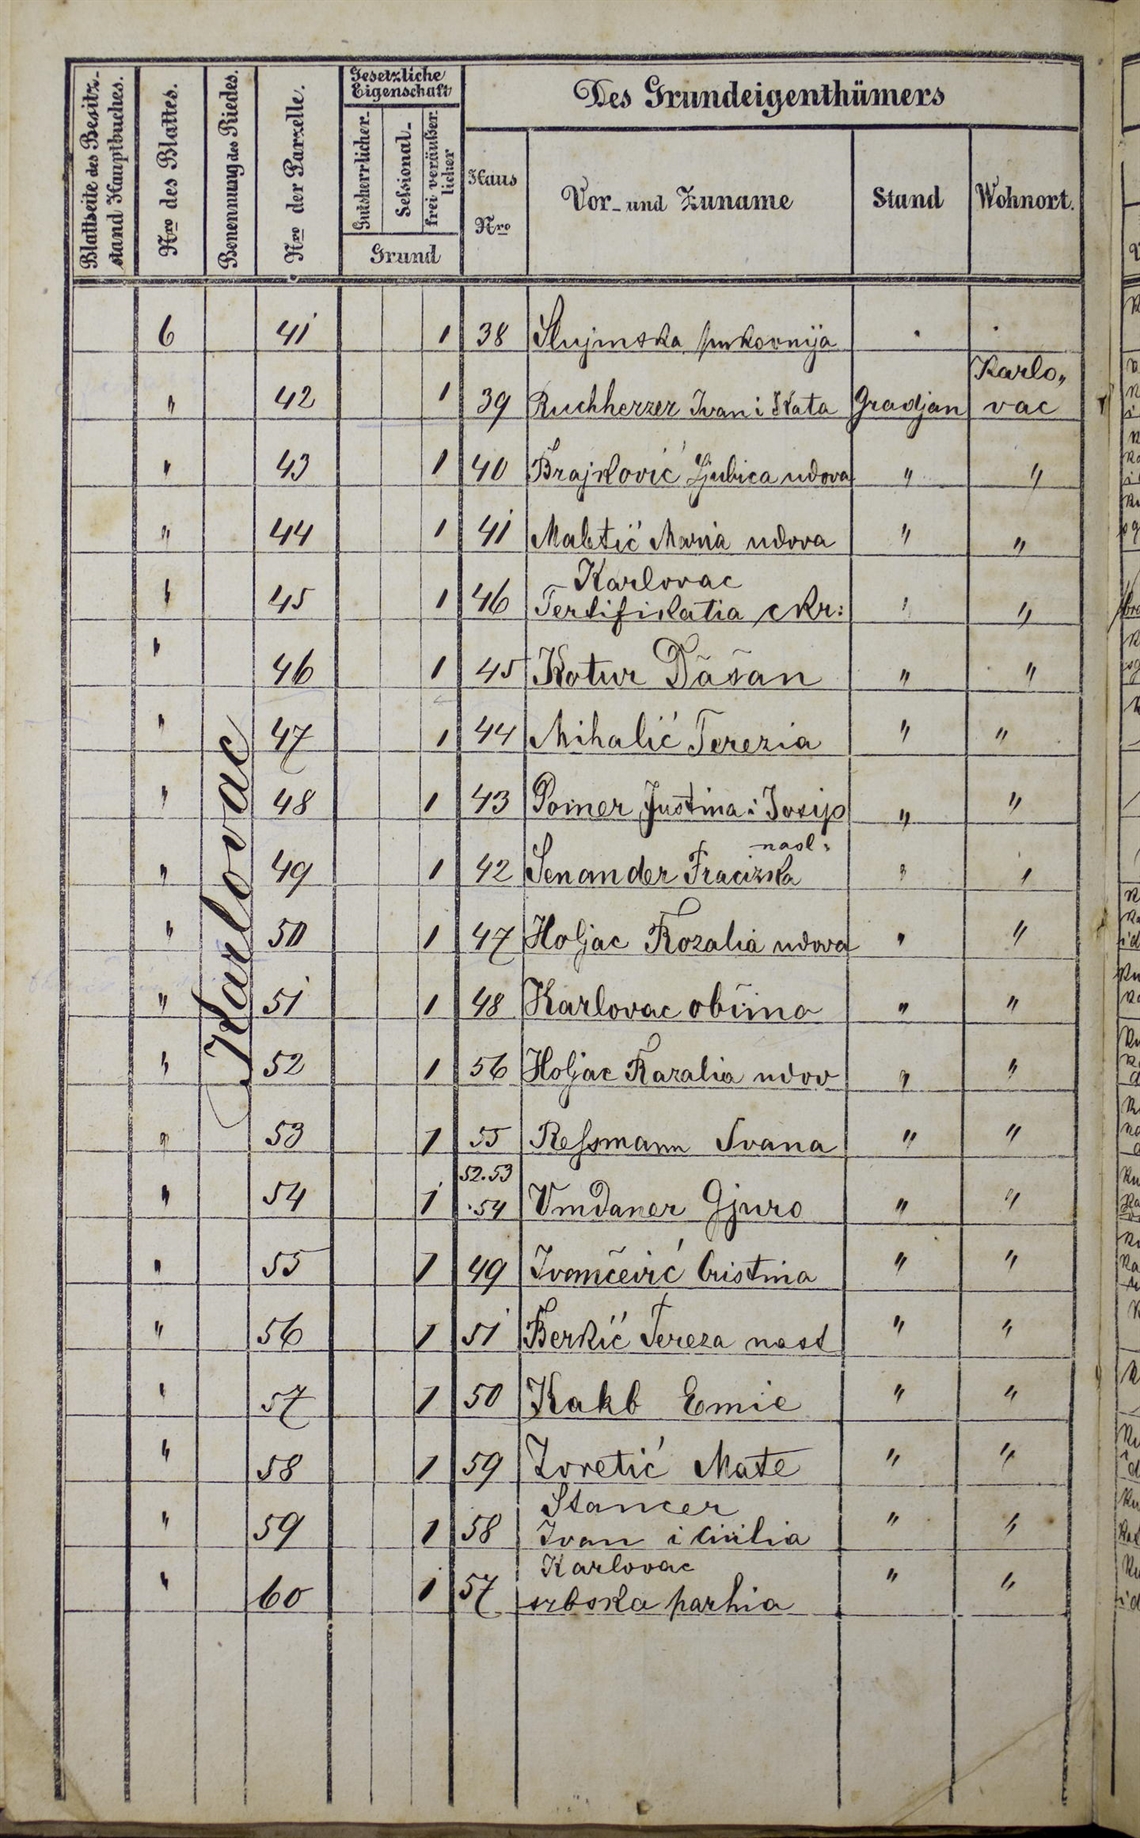 Blattseite des Besitzstand Hauptbuches.
Nro des Blattes.
Benennung des Riedes.
Nro der Parzelle.
Gesetzliche Eigenschaft
Gutsherrlicher-
Sessional-
frei veräußerlicher
Grund
Des Grundeigenthümers
Haus Nro
Vor- und Zuname
Stand
Wohnort.
Karlovac
6 41 1 38 Slujnska
Karlo„
„ 42 1 39 Ruchherzer Ivan i Kata Gradjan vac
„ 43 1 40 Brajković Ljubica udova „ „
„ 44 1 41 Maletić Maria udova „ „
Karlovac
„ 45 1 46 ckr: „ „
„ 46 1 45 Kotur Dāšan „ „
„ 47 1 44 Mihalić Terezia „ „
„ 48 1 43 Pomer Justina i Josip „ „
nasl:
„ 49 1 42 Senander Fraciska „ „
„ 50 1 47 Holjac Rozalia udova „ „
„ 51 1 48 Karlovac obćina „ „
„ 52 1 56 Holjac Razalia udov „ „
„ 53 1 55 Ressmann Ivana „ „
52.53
„ 54 1 .54 Vindaner Gjuro „ „
„ 55 1 49 Ivančević Cristina „ „
„ 56 1 51 Berkić Tereza nasl „ „
„ 57 1 50 Kakb Emie „ „
„ 58 1 59 Zoretić Mate „ „
Stancer
„ 59 1 58 Ivan i Cicilia „ „
Karlovac
„ 60 1 57 srbska parhia „ „